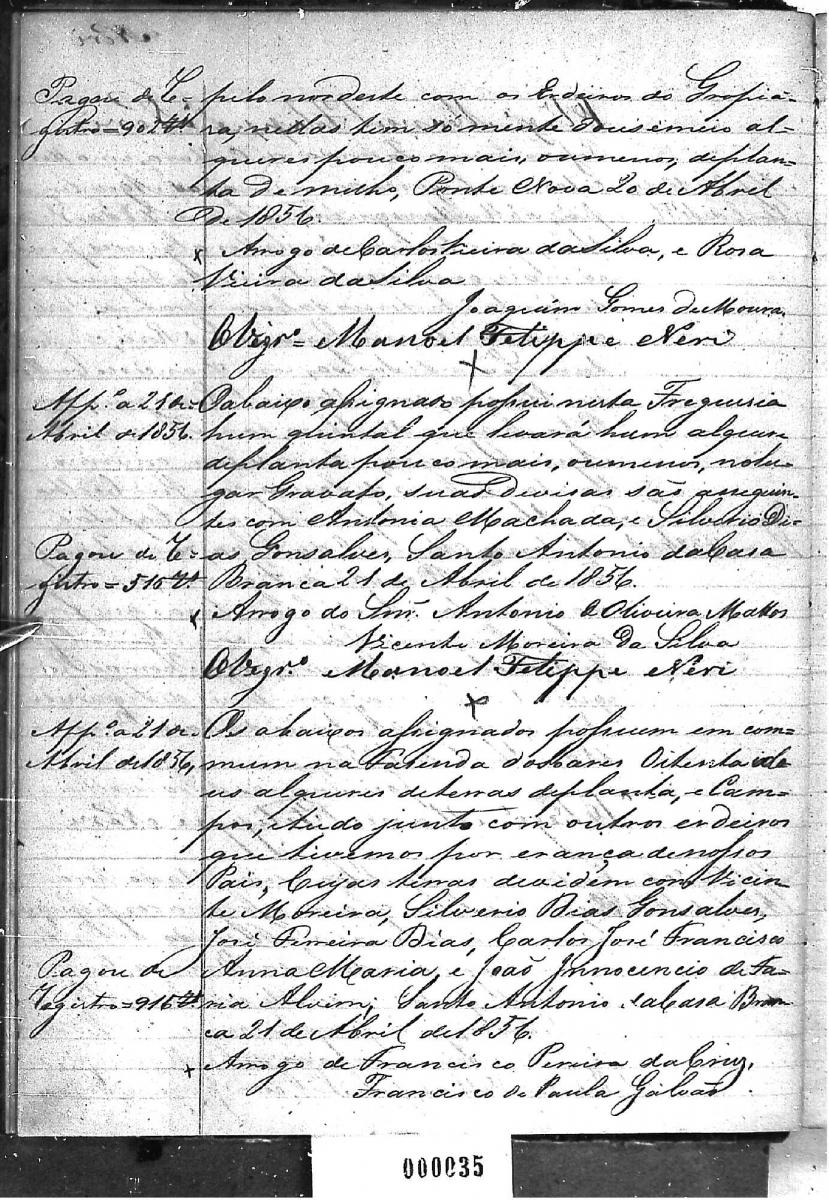 Pagou de Re=
gistro=902rs
pelo nordeste com os Erdeiros do Gropiá=
ra, nellas tem só mente dous emeio al=
queres pouco mais, oumenos, deplan=
ta de milho, Ponte Nova 20 de Abril
de 1856.
x Arrogo de Carlos Vieira da Silva, e Rosa
Vieira da Silva
Joaquim Gomes de Moura.
O Vigrº= Manoel Felippe Neri
Appº a 21 de=
Abril de 1856.
O abaixo assignado possui nesta Freguesia
hum quintal que levará hum alquere
deplanta pouco mais, oumenos, nolu=
gar Gravato, suas devisas são asseguin=
tes com Antonia Machada, e Silverio Di=
Pagou de Re=
gistro=516rs
as Gonsalves, Santo Antonio da Casa
Branca 21 de Abril de 1856.
x Arrogo do Snr. Antonio de Oliveira Mattos
Vicente Moreira da Silva
O Vigrº Manoel Felippe Neri
Appº a 21 de=
Abril de 1856,
Os abaixos assignados possuem em com=
mum na Fazenda dos Oitenta ede
us alqueres deterras deplanta, e Cam=
pos, etudo junto com outros erdeiros
que tivemos por erança denossos
Pais, Cujas terras devidem com Vicen=
te Moreira, Silverio Dias Gonsalves,
José Ferreira Dias, Carlos José Francisco
Pagou de
Registro=916rs
Anna Maria, e João Innocencio de Fa=
ria Alvim, Santo Antonio daCasa Bran=
ca 21 de Abril de 1856.
x Arrogo de Francisco Pereira da Cruz,
Francisco de Paula Galvão
000035